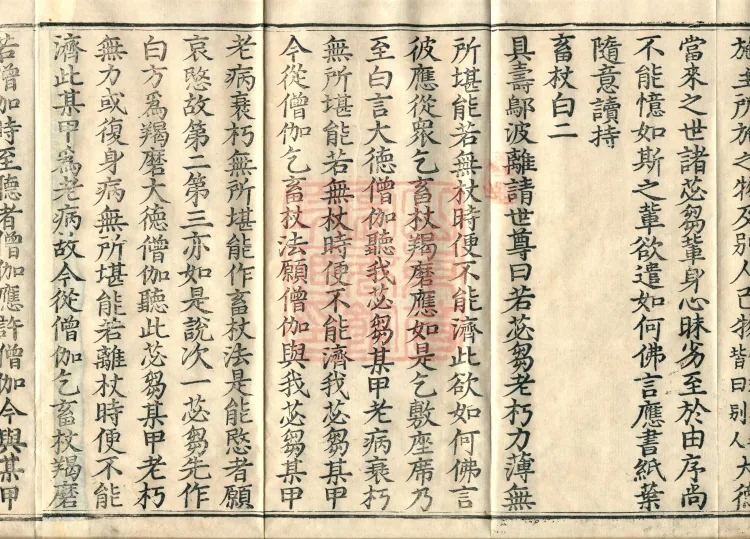 施主所施之物分別人己物皆曰別人大德
當來之世諸苾芻輩身心昧劣至於由序尚
不能憶如斯之輩欲遣如何佛言應書紙葉
隨意讀持
畜杖白二
具壽鄔波離請世尊曰若苾芻老朽力薄無
所堪能若無杖時便不能濟此欲如何佛言
彼應從眾乞畜杖羯磨應如是乞敷座席乃
至白言大德僧伽聽我苾芻某甲老病衰朽
無所堪能若無杖時便不能濟我苾芻某甲
今從僧伽乞畜杖法願僧伽與我苾芻某甲
老病衰朽無所堪能作畜杖法是能愍者願
哀愍故第二第三亦如是說次一苾芻先作
白方為羯磨大德僧伽聽此苾芻某甲老朽
無力或復身病無所堪能若離杖時便不能
濟此某甲為老病故今從僧伽乞畜杖羯磨
若僧伽時至聽者僧伽應許僧伽今與某甲